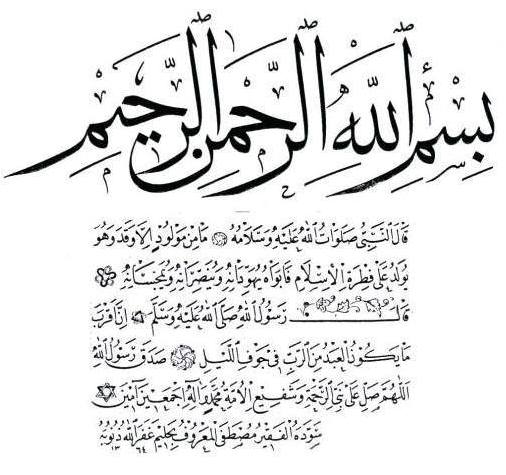 بسم الله الرحمن الرحيم
قال النبي صلوات الله عليه وسلامه ما من مولود إلا وقد وهو
يولد على فطرة الإسلام فأبواه يهودانه وينصرانه ويمجسانه
قال رسول الله صلى الله عليه وسلم إن أقرب
ما يكون العبد من الرب في جوف الليل صدق رسول الله
اللهم صل على نبي الرحمة وشفيع الأمة محمد وآله أجمعين آمين
سوده الفقير مصطفى المعروف بحليم غفر الله ذنوبه
١٣٦٤